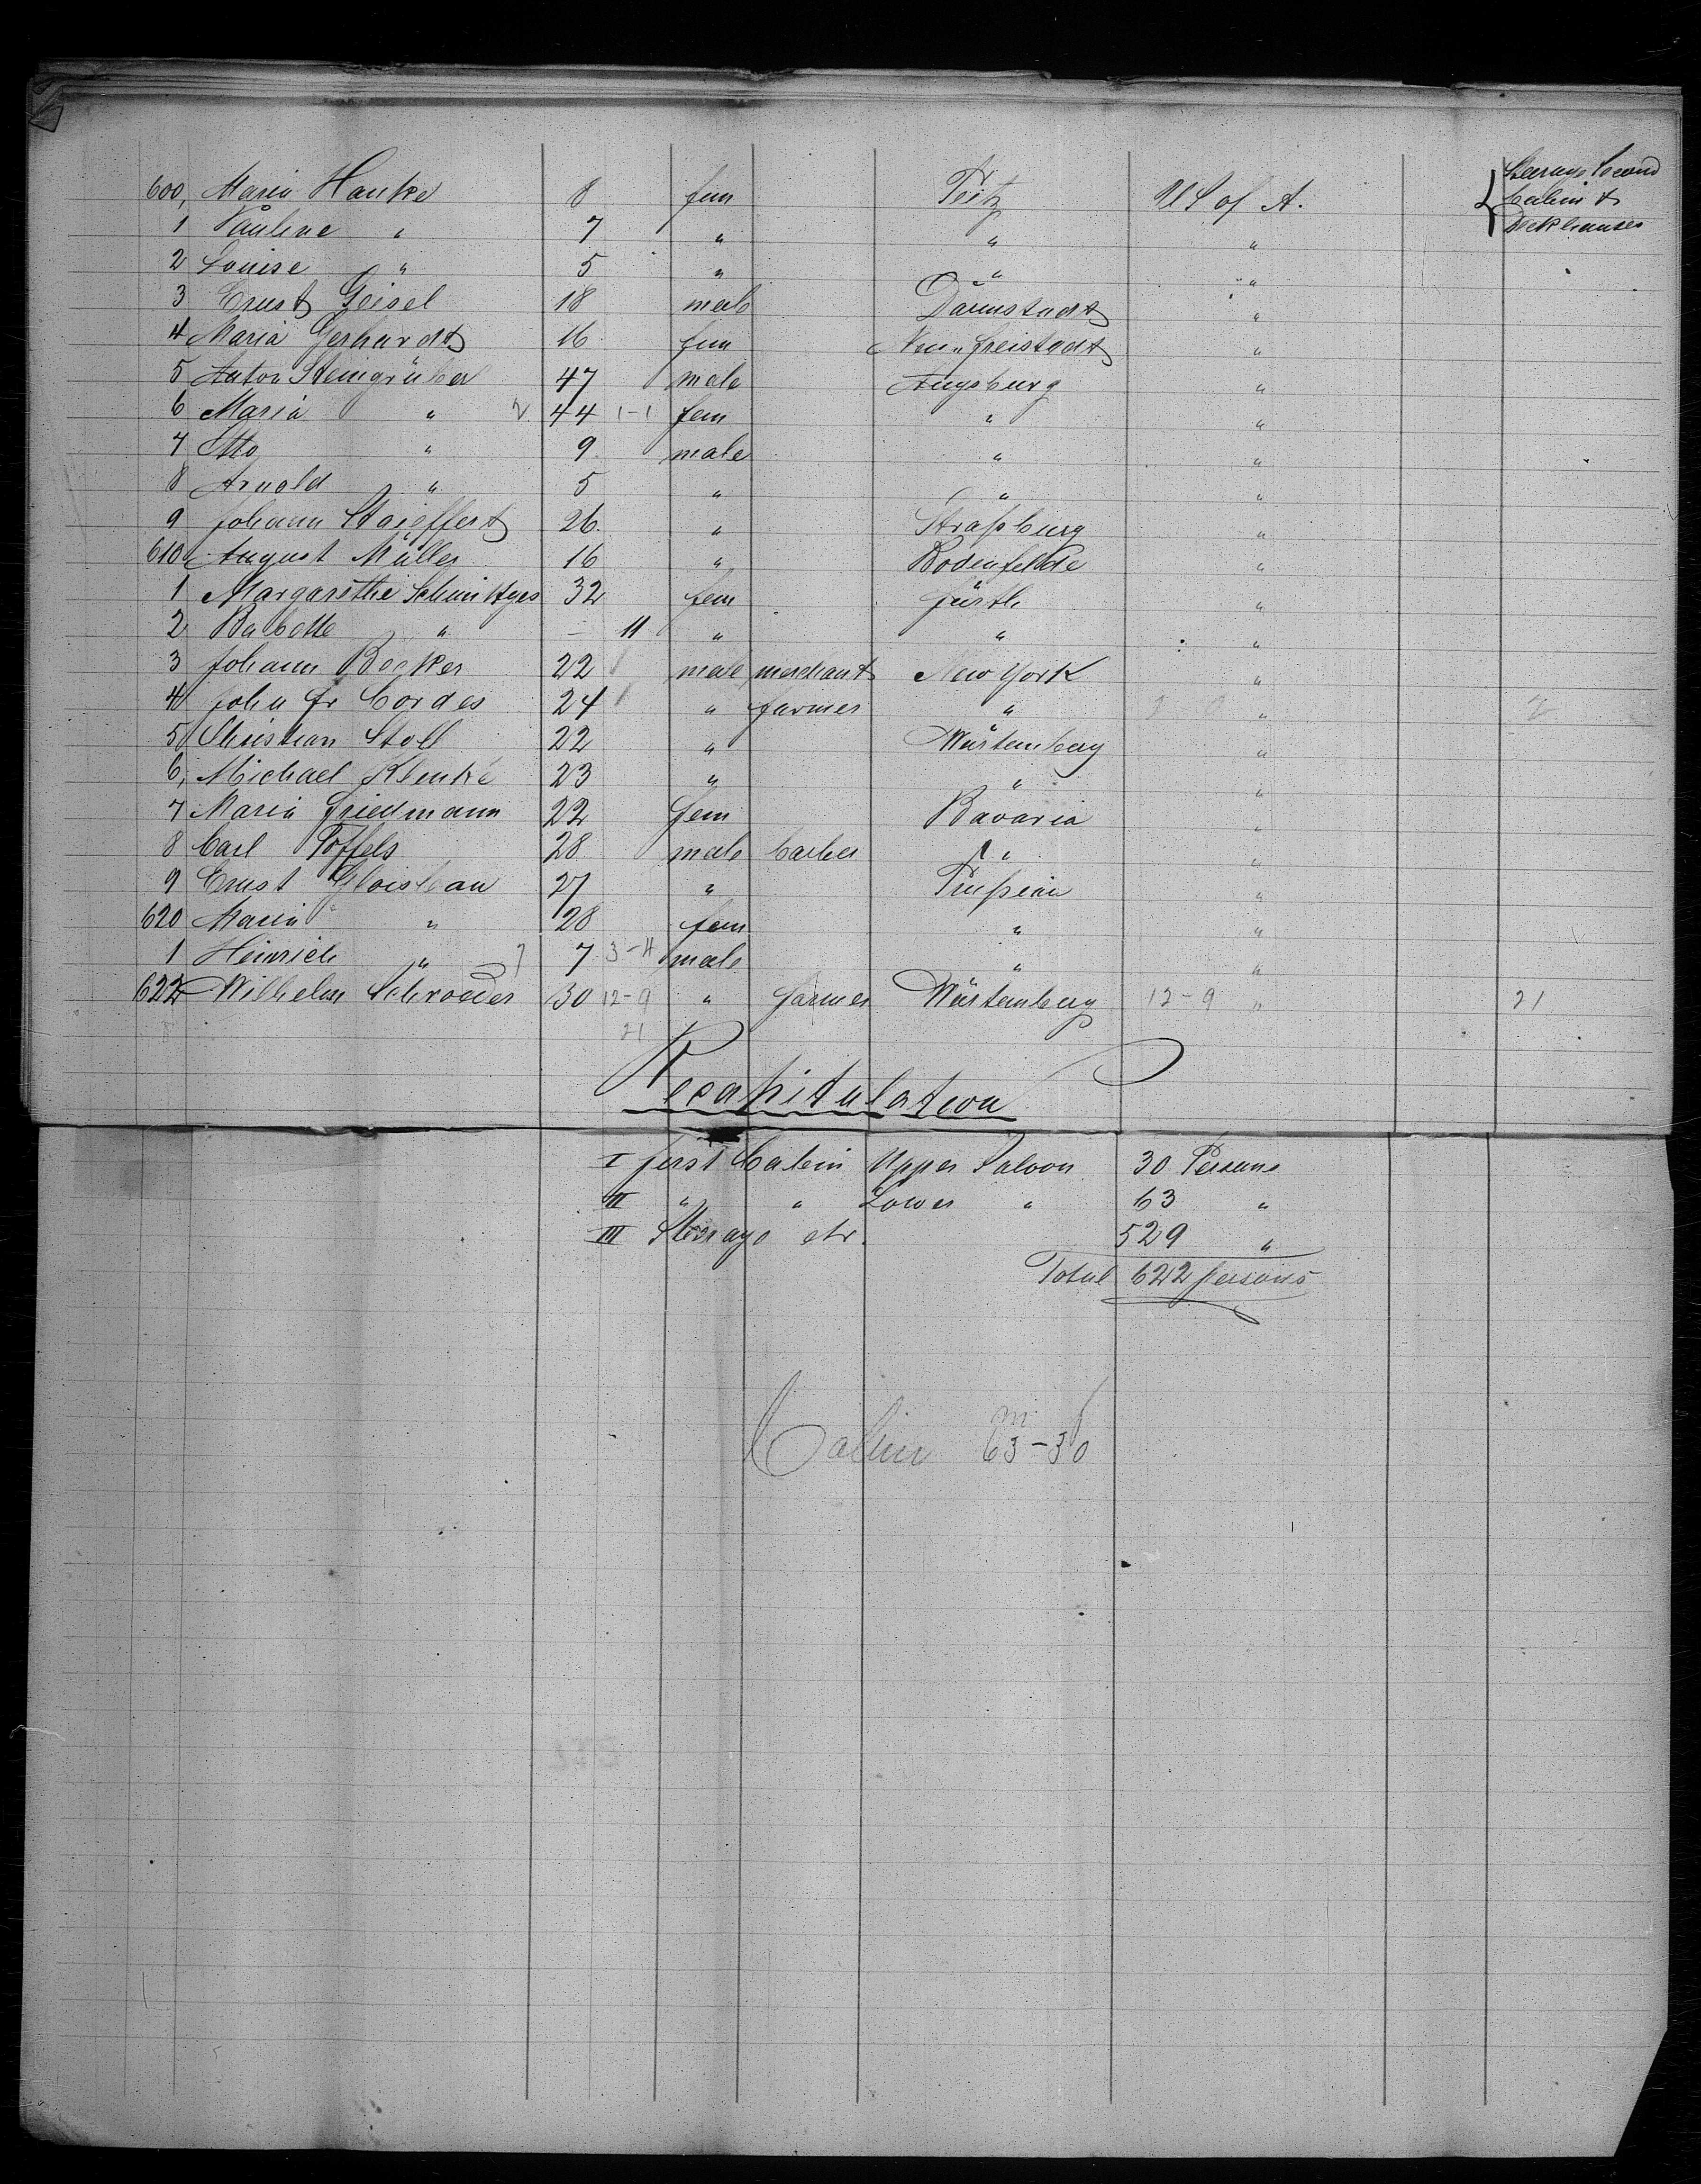 600, Maria Hanke 8 fem Peitz U S of A. Steerage Second
1 Pauline " 7 " " " Cabin &
2 Louise " 5 " " " Deckhauses
3 Ernst Geisel 18 male Darmstadt "
4 Maria Gerhardt 16 fem Neu-freistadt "
5 Anton Steingrüber 47 male Augsburg "
6 Maria " 2 44 1-1 fem " "
7 Otto " 9 male " "
8 Arnold " 5 " " "
9 Johann 26 " Straßburg "
610 August Müller 16 " Bodenfelde "
1 Margarethe 32 fem Fürth "
2 Babette " - 11 " " "
3 Johann Becker 22 male merchant New York "
4 John Fr Cordes 24 " farmer " "
5 Christian Stoll 22 " Würtemberg "
6, Michael Klenke 23 " " "
7 Maria Friedmann 22 fem Bavaria "
8 Carl Poffels 28 male barber " "
9 Ernst 27 " Prußian "
620 Maria " 28 fem " "
1 Heinrich " 7 3-4 male " "
622 Wilhelm Schroeder 30 12-9 " farmer Würtemberg 12-9 " 21
21
Recapitulation
I first Cabin Upper Saloon 30 Persons
II " " Lower " 63 "
III Steerage etc. 529 "
Total 622 persons
Cabin 63-30